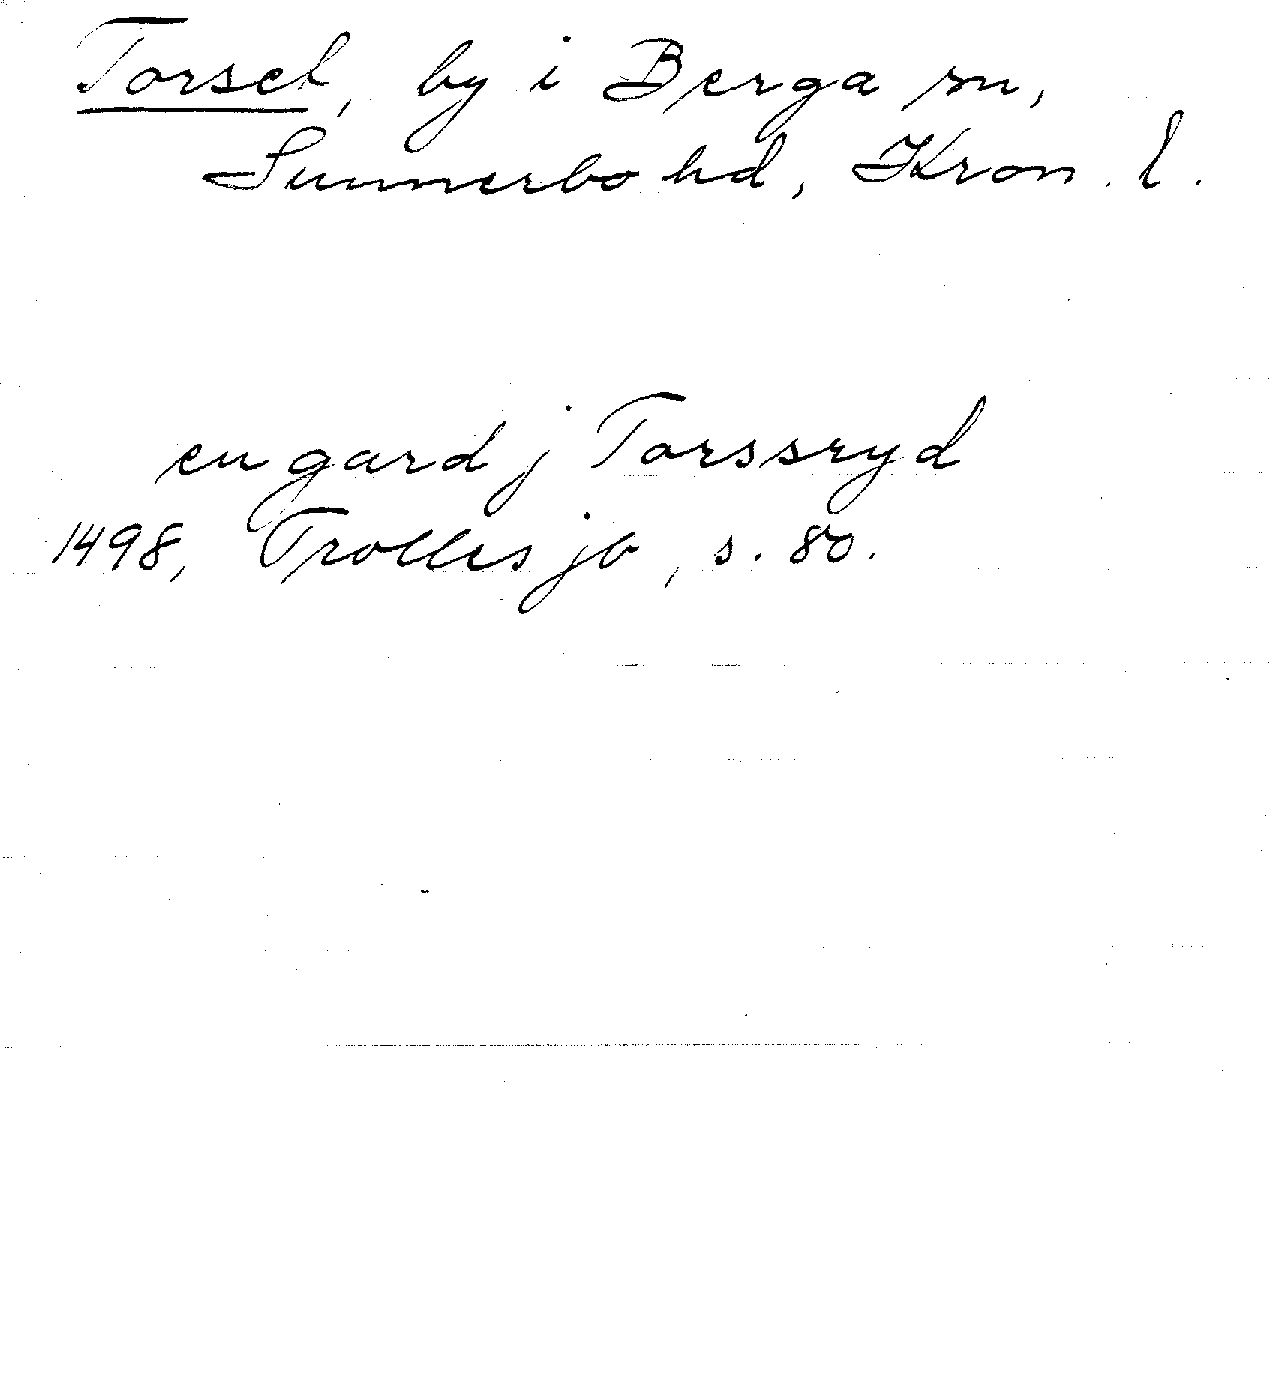 Torset, by i Berga sn,
Sunnerbo hd, Kron. l.
en gard j Torssryd
1498, Trolles jb, s. 80.